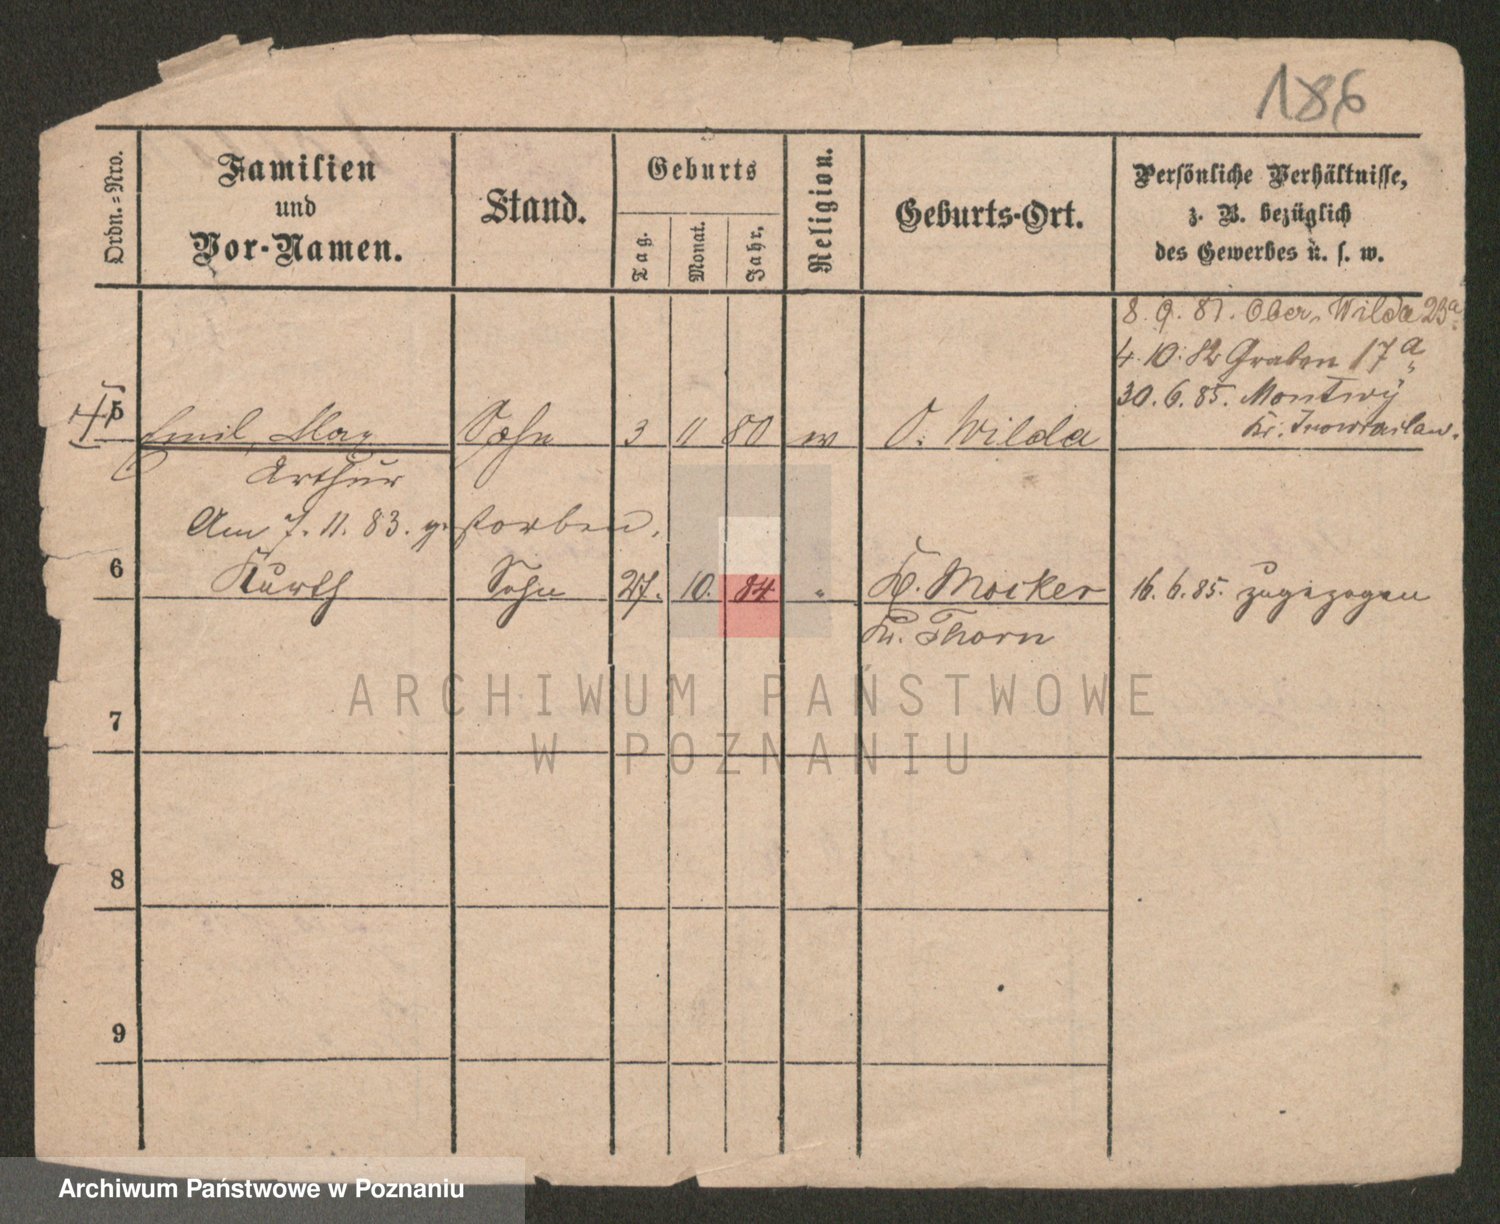 186
Ordn.-Nro.
Familien
und
Vor-Namen.
Stand.
Geburts
Tag.
Monat.
Jahr.
Religion.
Geburts-Ort.
Persönliche Verhältnisse,
z. B. bezüglich
des Gewerbes u. s. w.
8. 9. 81. Ober-Wilda 23a
4. 10. 82 Graben 17a
30. 6. 85. Montwy
Kr. Inowrazlaw.
5 Emil, Max Sohn 3 11 80 O. Wilda
Arthur
Am 7. 11. 83. gestorben.
6 Kurth Sohn 27. 10. 84 " Mocker 16. 6. 85. zugezogen
Kr. Thorn
7
8
9
ARCHIWUM PAŃSTWOWE
W POZNANIU
Archiwum Państwowe w Poznaniu